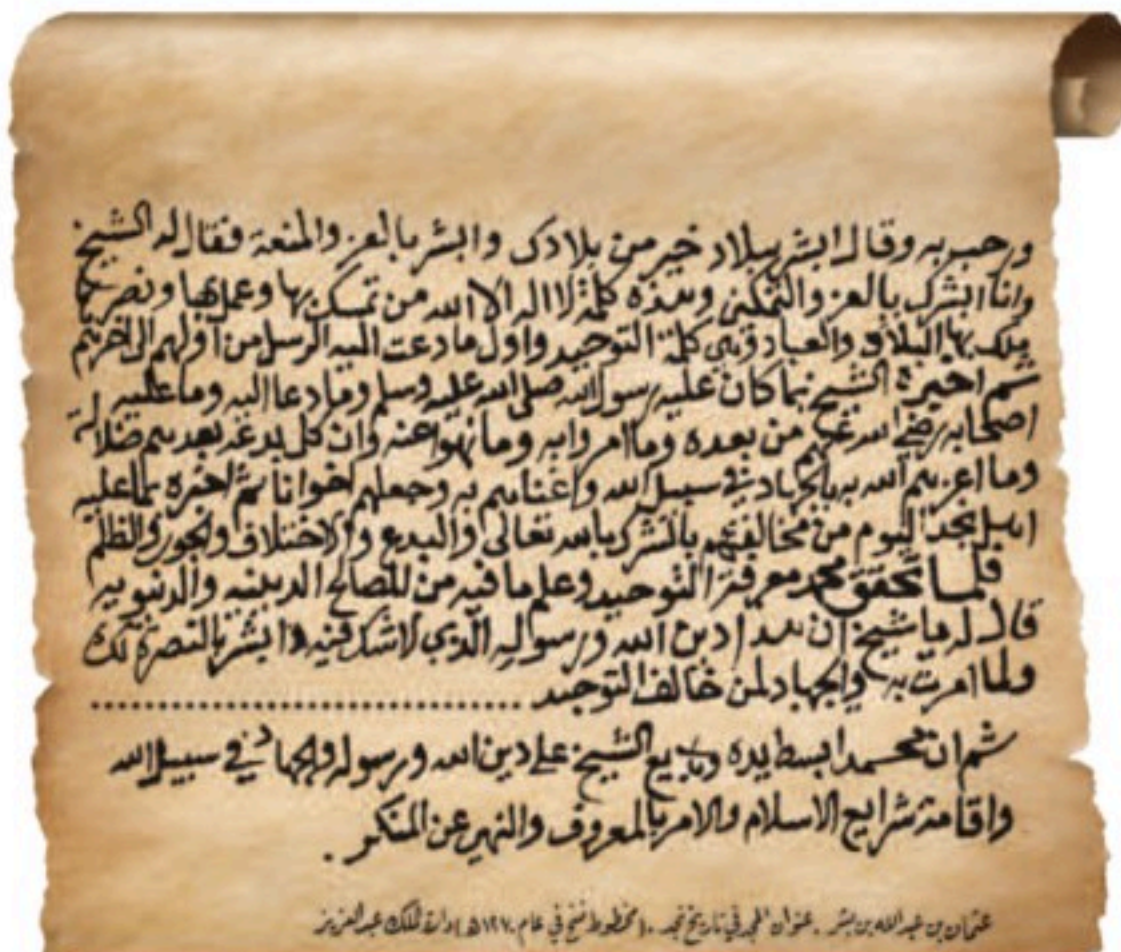 ورحب به وقال ابشر ببلاد خير من بلادك وابشر بالعز والمنعة فقال له الشيخ
وانا ابشرك بالعز والتمكن وهذه كلمة لا اله الا الله من تمسك بها وعمل بها ونصرها
ملك بها البلاد والعباد وهي كلمة التوحيد واول ما دعت اليه الرسل من اولهم الى اخرهم
ثم اخبره الشيخ بما كان عليه رسول الله صلى الله عليه وسلم وما دعا اليه وما عليه
اصحابه رضي الله عنهم من بعده وما امروا به وما نهوا عنه وان كل بدعة بعدهم ضلالة
وما اعزهم الله به بالجهاد في سبيل الله واغناهم به وجعلهم اخوانا ثم اخبره بما عليه
اهل نجد اليوم من مخالفتهم بالشرك بالله تعالى والبدع والاختلاف والجور والظلم
فلما تحقق محمد معرفة التوحيد وعلم ما فيه من المصالح الدينيه والدنيويه
قال له يا شيخ ان هذا دين الله ورسوله الذي لا شك فيه وابشر بالنصرة لك
ولما امرت به والجهاد لمن خالف التوحيد ................................
ثم ان محمدا بسط يده وبايع الشيخ على دين الله ورسوله والجهاد في سبيل الله
واقامة شرايع الاسلام والامر بالمعروف والنهي عن المنكر .
عثمان بن عبدالله بن بشر . عنوان المجد في تاريخ نجد . (مخطوط نسخ في عام ١٢٧٠هـ) دارة الملك عبدالعزيز